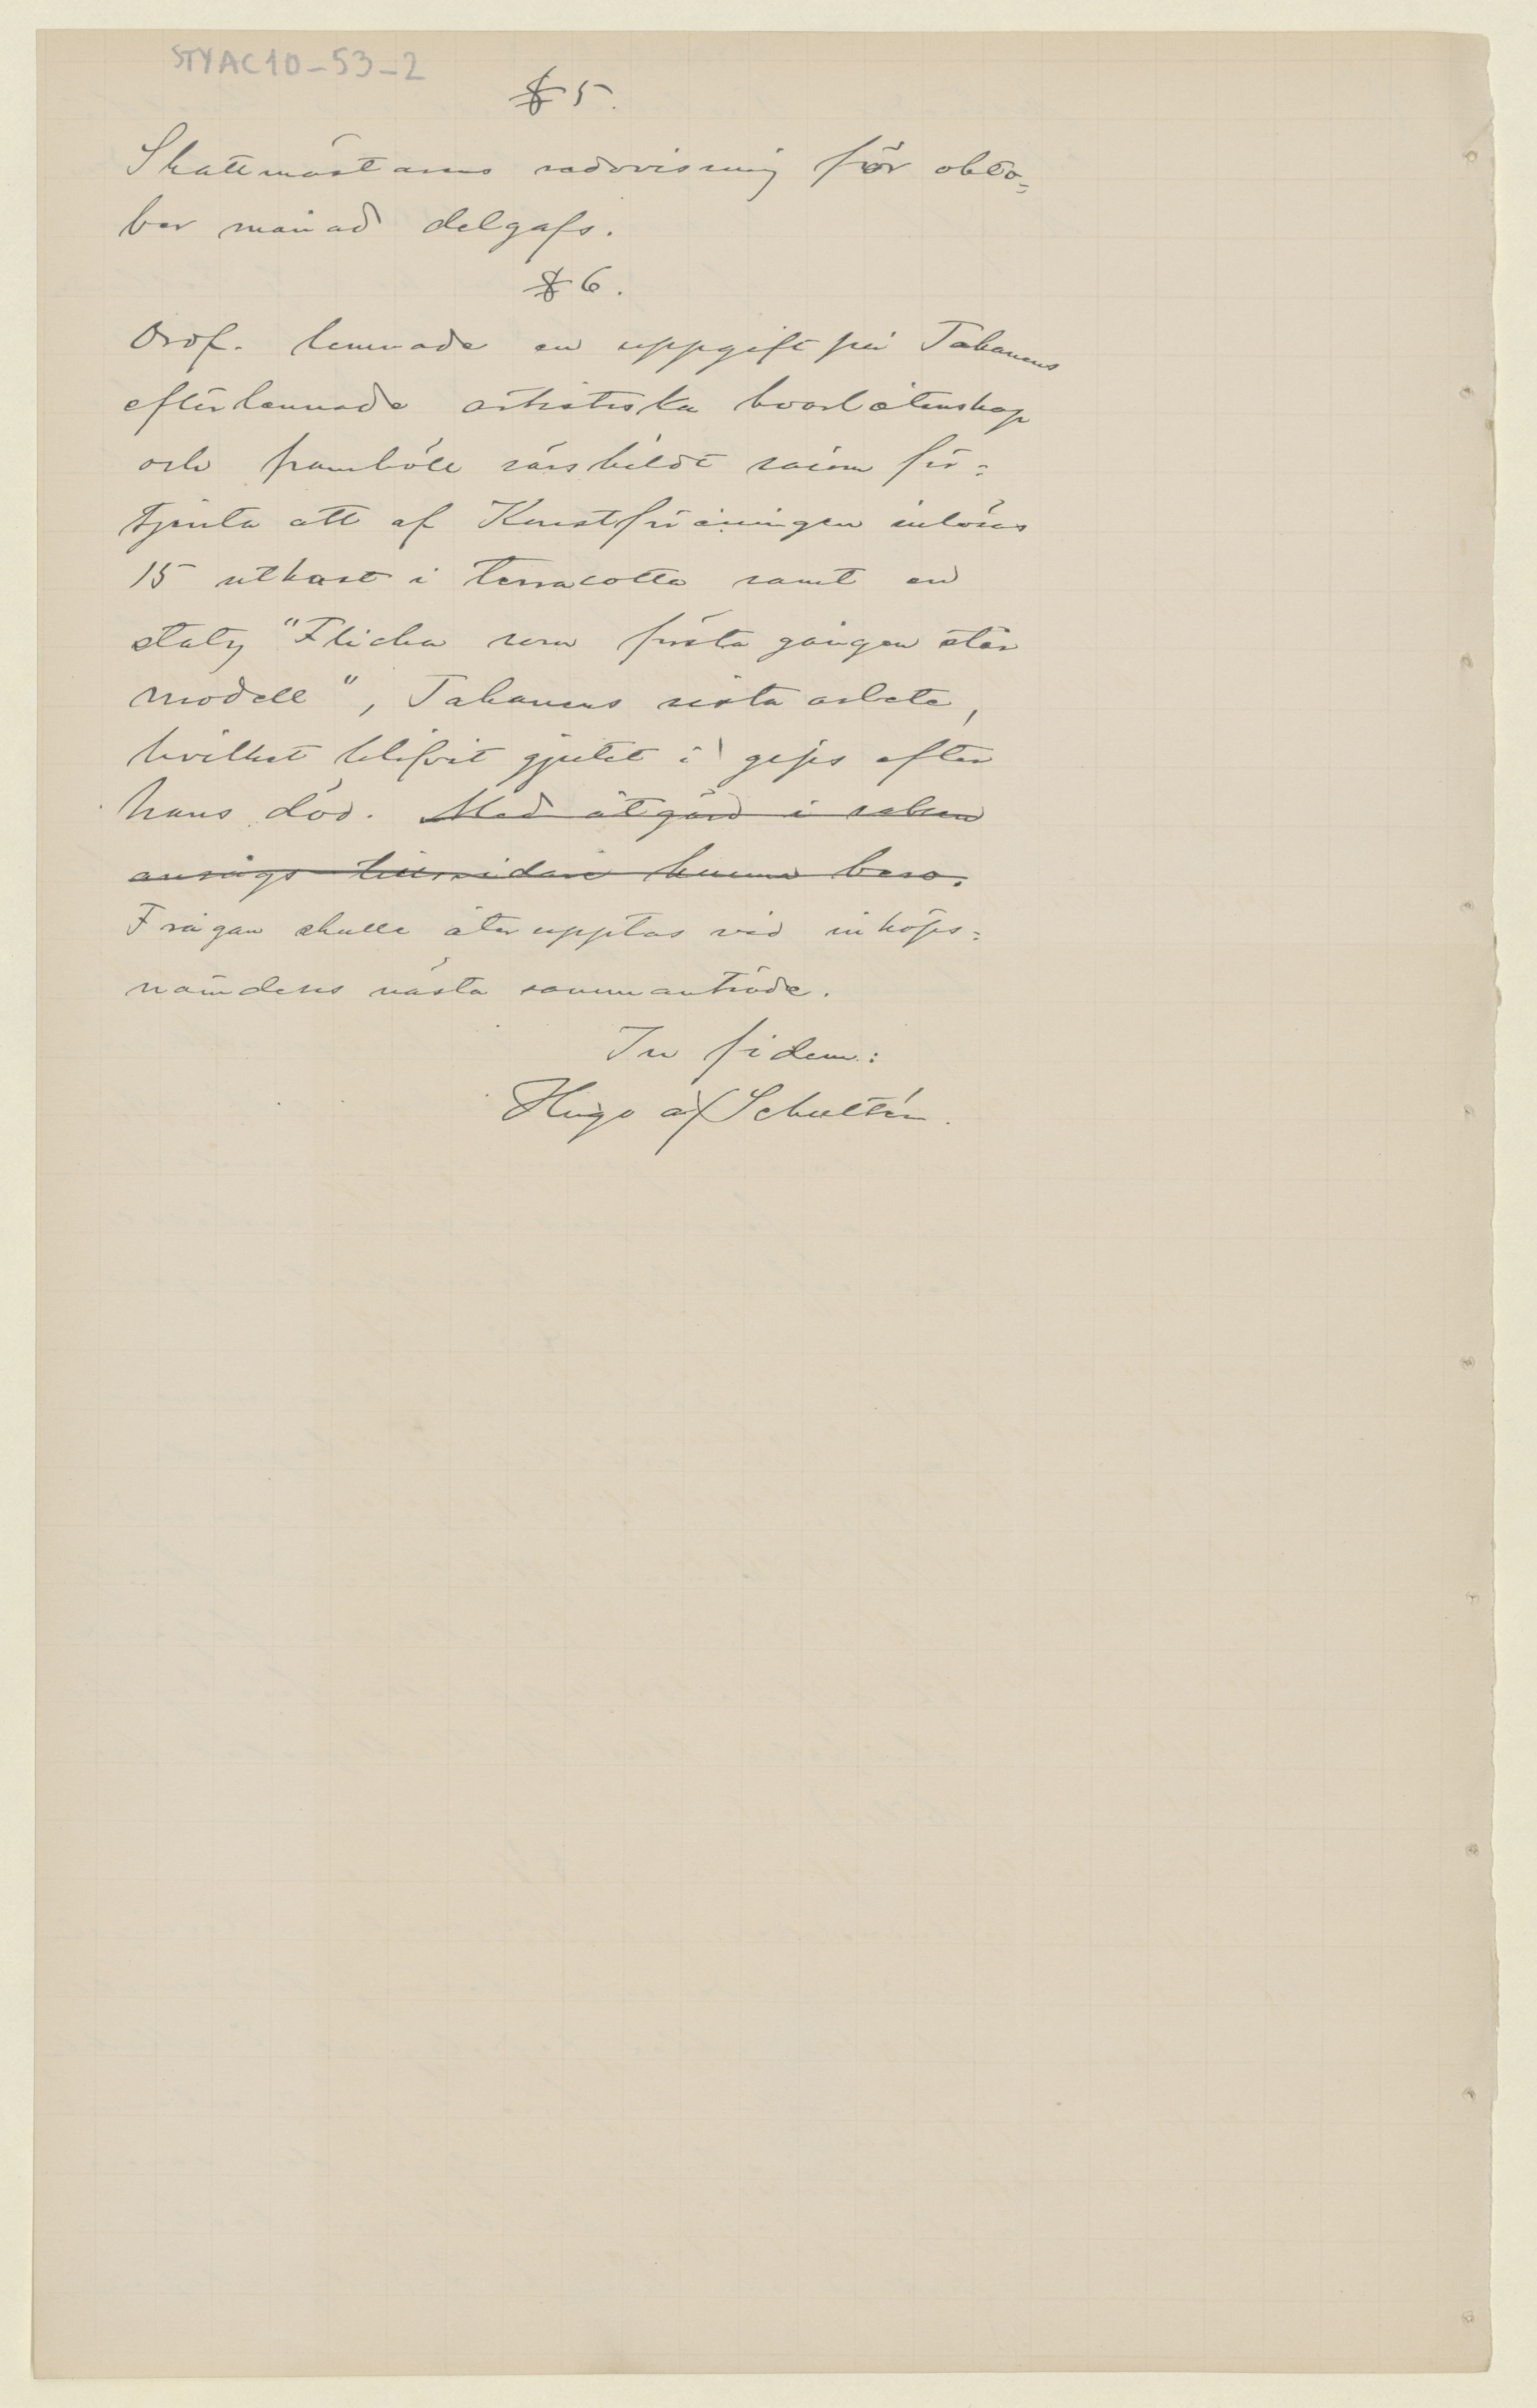 STYAC10-53-2
§ 5.
Skattmästarens redovisning för okto=
ber månad delgafs.
§ 6.
Ordf. lemnade en uppgift på Takanens
efterlemnade artistiska kvarlåtenskap
och framhöll särskildt såsom för=
tjenta att af Konstföreningen inlösas
15 utkast i terracotta samt en
staty "Flicka som första gången står
modell", Takanens sista arbete,
hvilket blifvit gjutet i gips efter
hans död. Med åtgärd i saken
ansågs tillsvidare kunna bero.
Frågan skulle åter upptas vid inköps=
nämdens nästa sammanträde.
In fidem:
Hugo af Schultén.